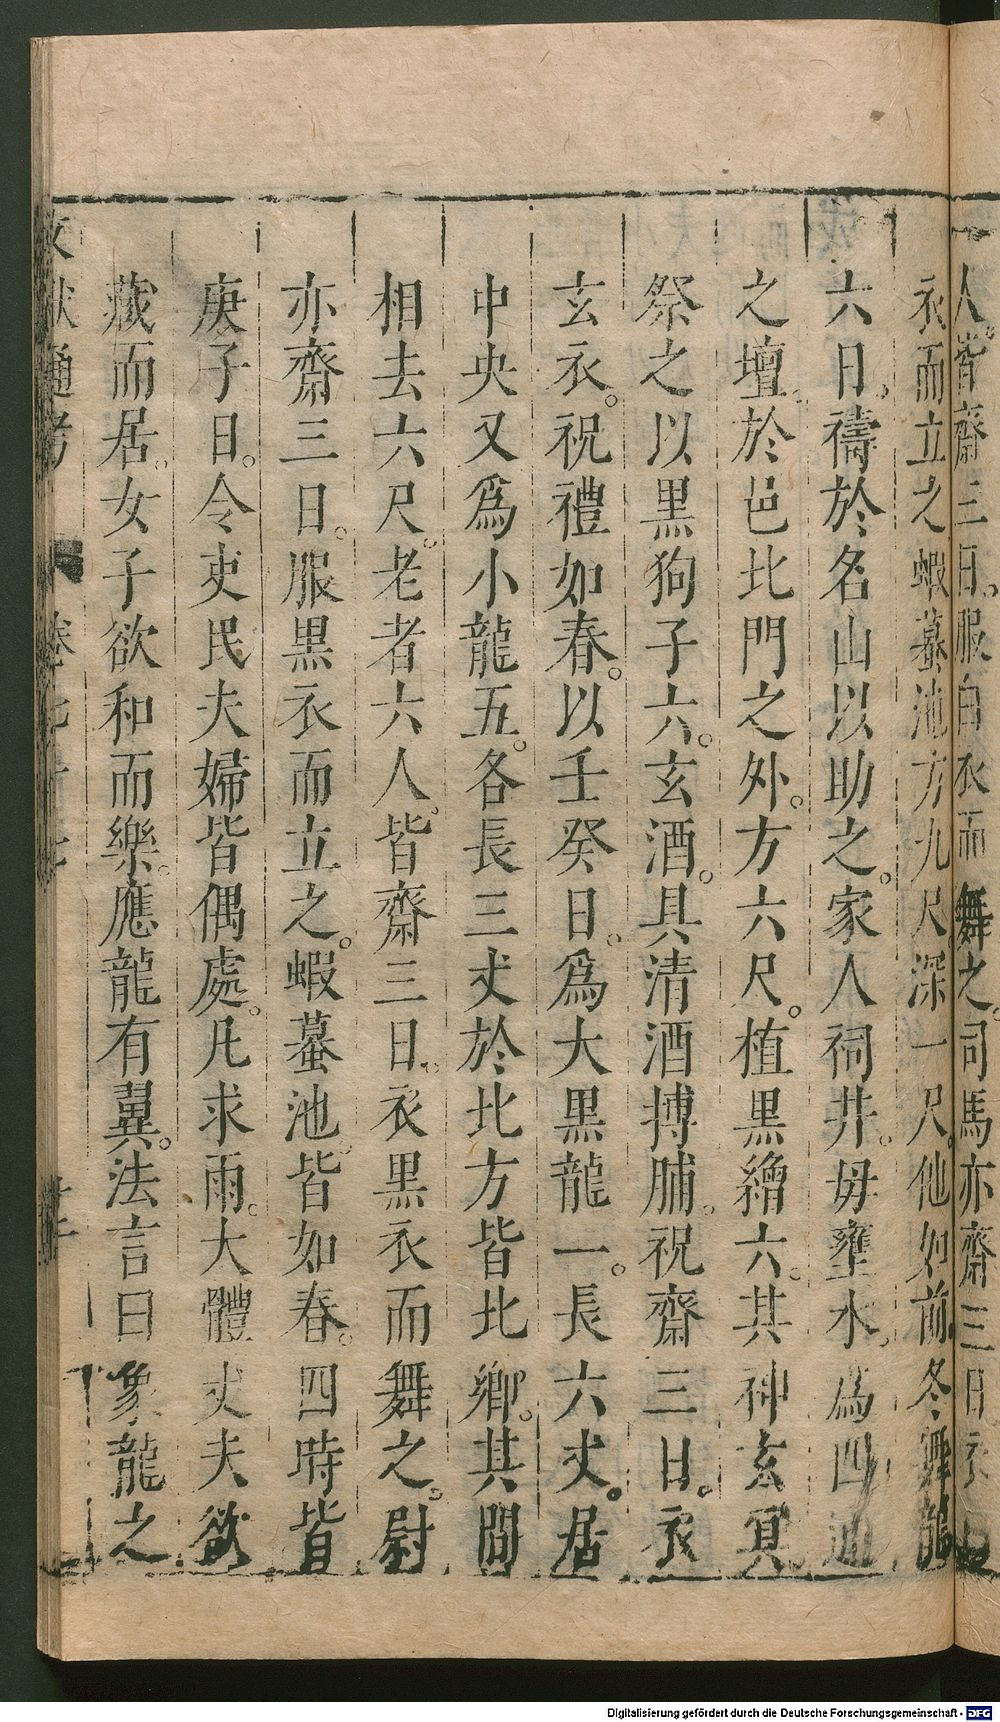 人。皆齋三日。服白衣而舞之。司馬亦齋三日。衣白
衣而立之蝦蟇池方九尺。深一尺。他如前冬舞龍
六日。禱於名山以助之。家人祠井。毋壅水。為四通
之壇。於邑北門之外。方六尺。植黒繒六。其神玄冥
祭之以黒狗子六。玄酒。具清酒搏脯。祝齋三日。衣
玄衣。祝禮如春。以壬癸日。為大黒龍一。長六丈。居
中央又為小龍五。各長三丈於北方皆北鄉。其間
相去六尺。老者六人。皆齋三日。衣黒衣而舞之。尉
亦齋三日。服黒衣而立之。蝦蟇池。皆如春。四時皆
庚子日。令吏民夫婦皆偶處。凡求雨。大體丈夫欲
藏而居。女子欲和而樂。應龍有翼。法言曰象龍之
文獻通考 卷七十七
Digitalisierung gefördert durch die Deutsche Forschungsgemeinschaft - DFG